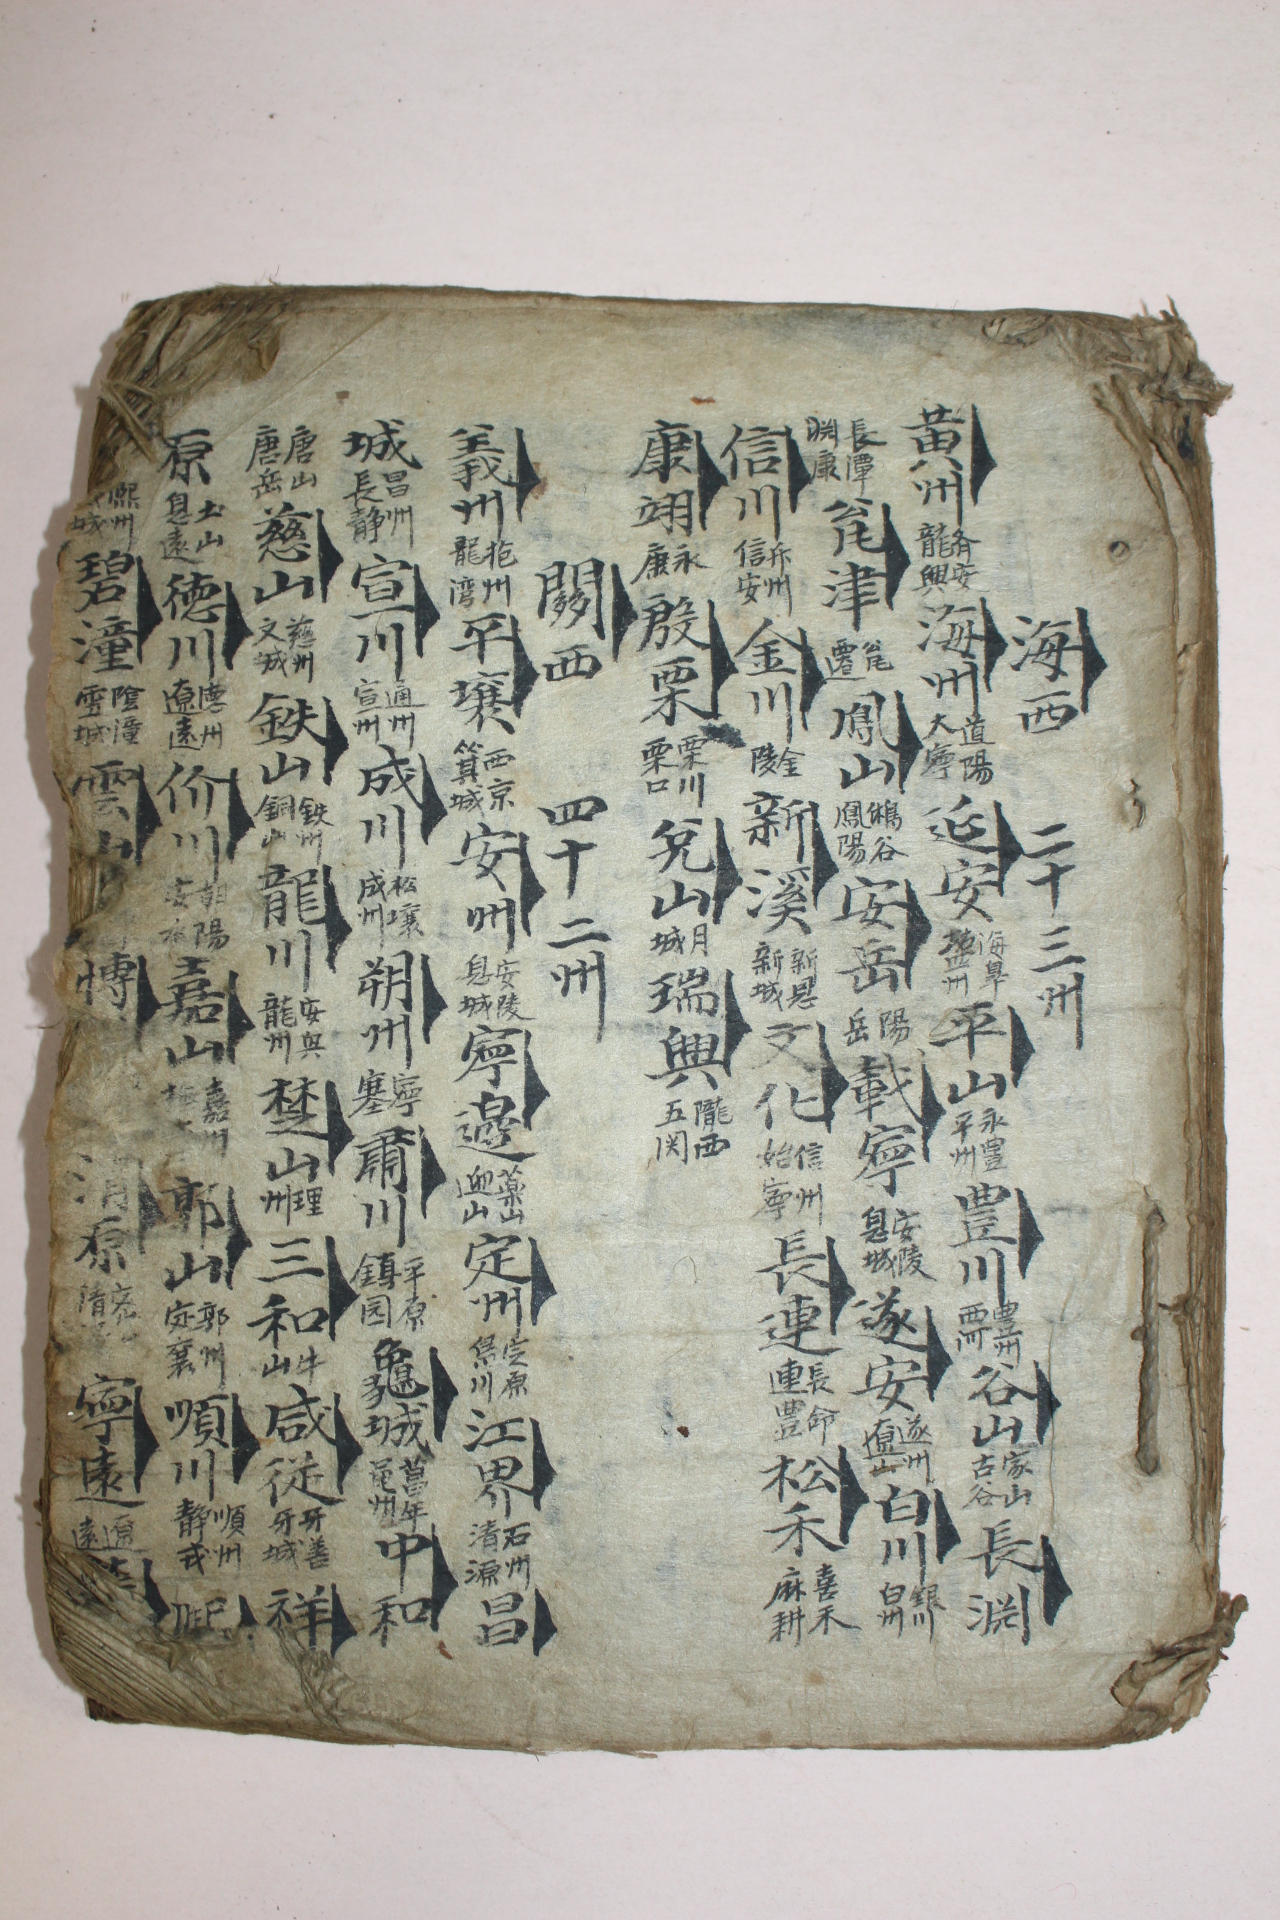 海西 二十三州
黃州 齊安 龍興 海州 道陽 大寧 延安 海皐 塩州 平山 永豊 平州 豊川 豊州 西州 谷山 象山 古谷 長淵
長潭 淵康 瓮津 瓮遷 鳳山 鵂谷 鳳陽 安岳 陽岳 載寧 安陵 息城 遂安 遂州 遼山 白川 銀川 白州
信川 升州 信安 金川 金陵 新溪 新恩 新城 文化 信州 始寧 長連 長命 連豊 松禾 嘉禾 麻耕
康翊 永康 殷栗 栗川 栗口 兔山 月城 瑞興 隴西 五関
關西 四十二州
義州 抱州 龍湾 平壤 西京 箕城 安州 安陵 息城 寧邊 藥山 迎山 定州 定原 烏川 江界 石州 清源 昌
城 昌州 長静 宣川 通州 宣州 成川 松壤 成州 朔州 寧塞 肅川 平原 鎮国 龜城 萬年 黽州 中和
唐山 唐岳 慈山 慈州 文城 鉄山 鉄州 銅山 龍川 安興 龍州 楚山 理州 三和 牛山 咸從 牙善 牙城 祥
原 土山 息遠 德川 德州 遼遠 价川 朝陽 安水 嘉山 嘉州 郭山 郭州 定襄 順川 順州 静戎
熙州 城 碧潼 陰潼 雪城 雲山 博 清原 寧遠 遼遠